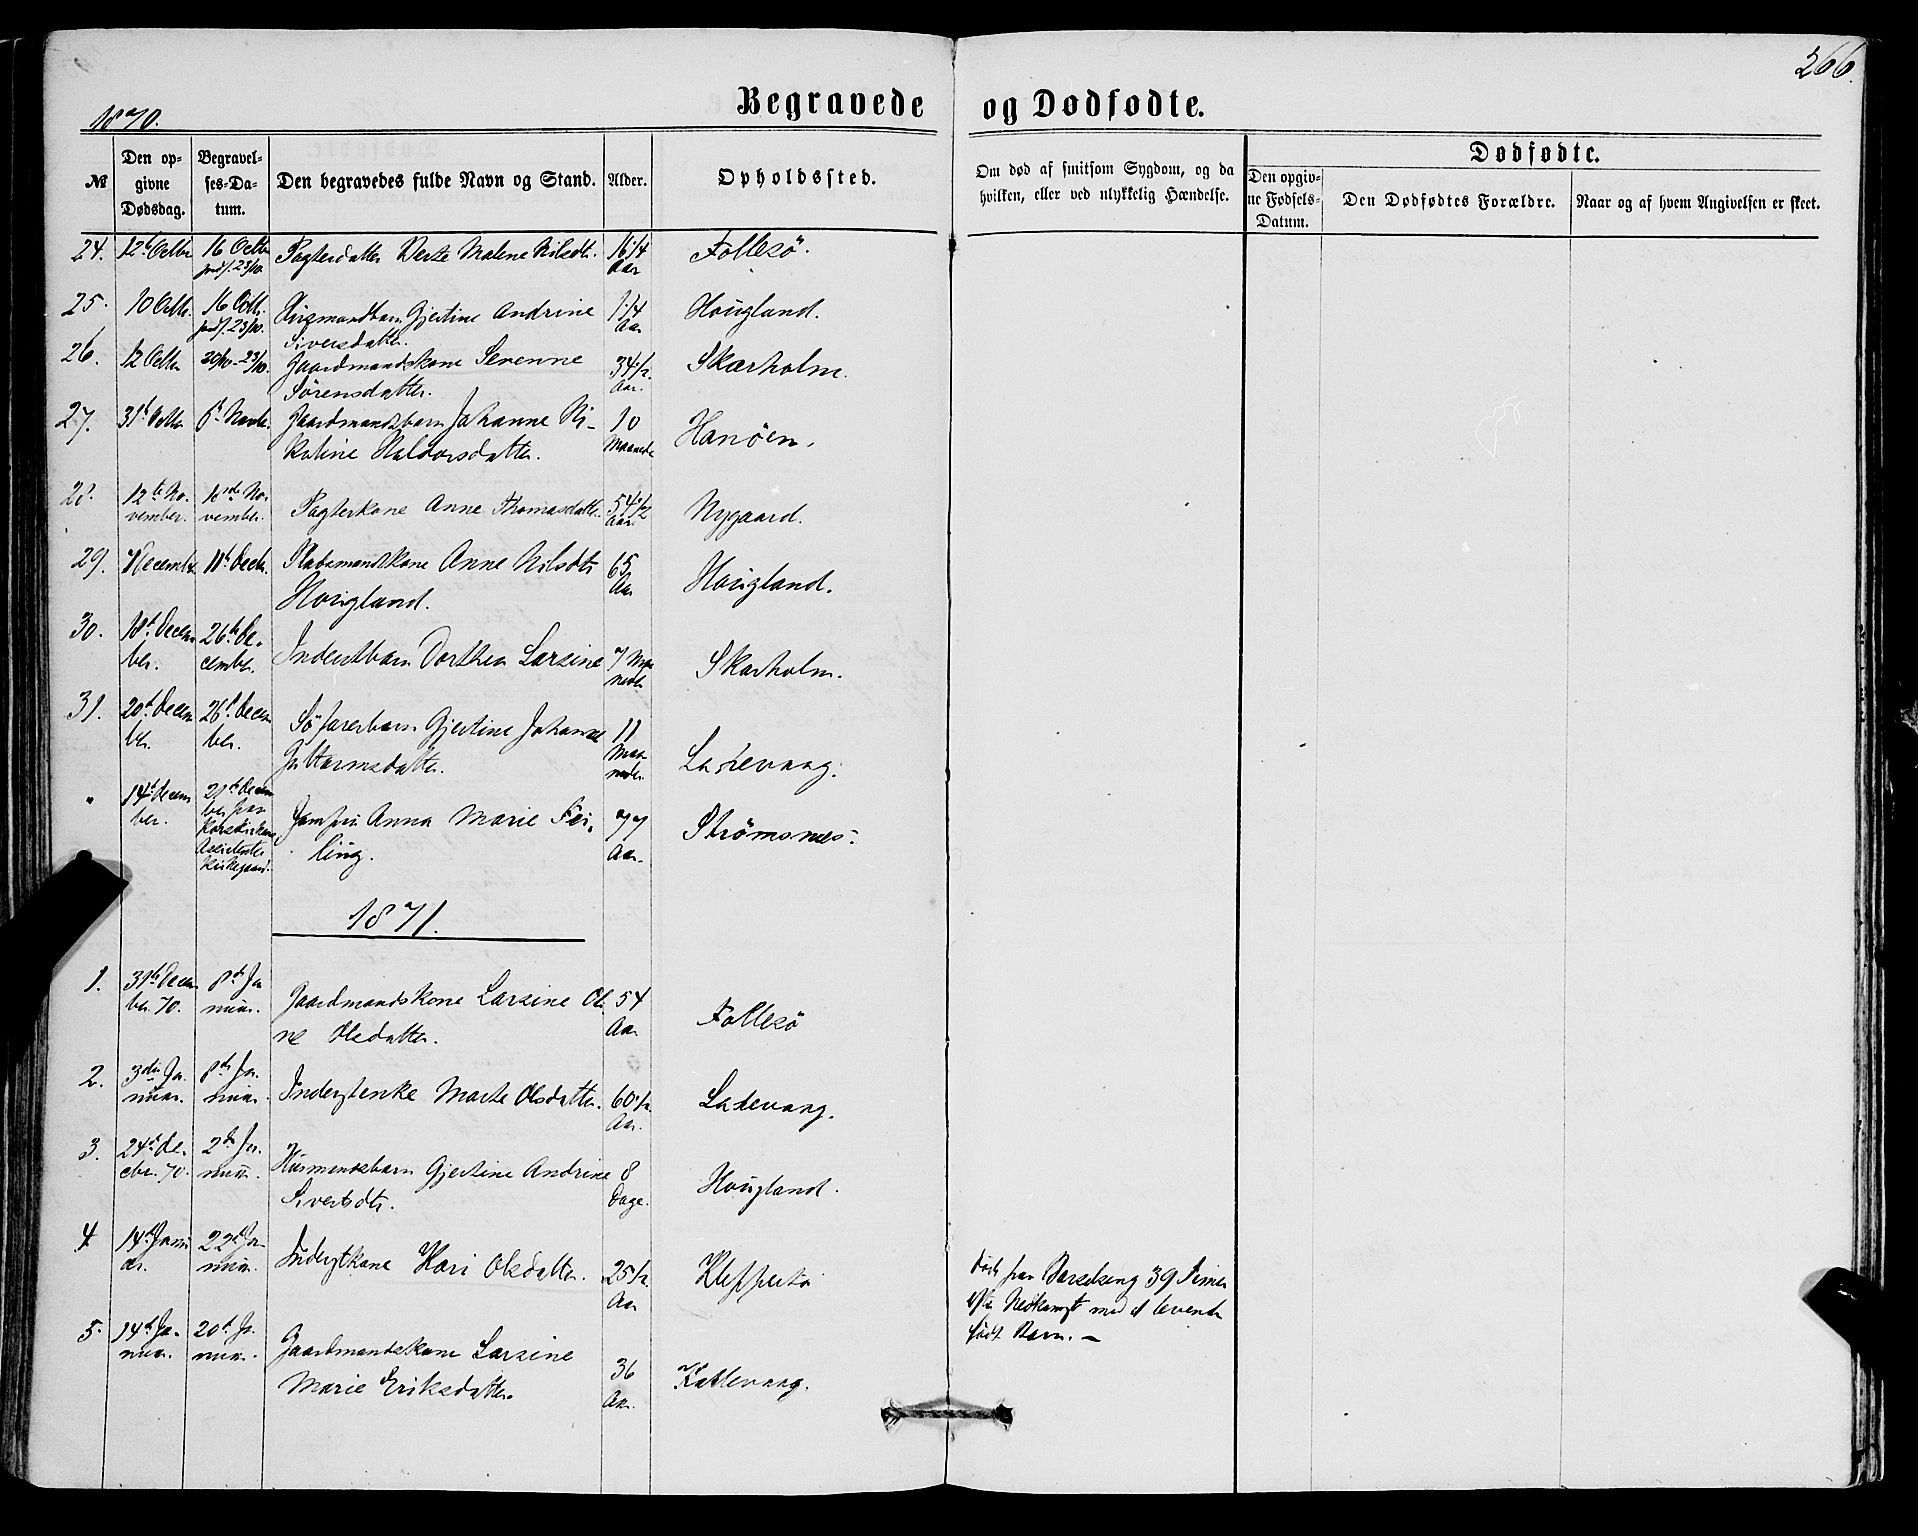 266.
1870.
Begravede og Dødfødte.
№
Den opgivne Dødsdag.
Begravelses-Datum.
Den begravedes fulde Navn og Stand.
Alder.
Opholdssted.
Om død af smitsom Sygdom, og da hvilken, eller ved ulykkelig Hændelse.
Dødfødte.
Den opgivne Fødsels-Datum.
Den Dødfødtes Forældre.
Naar og af hvem Angivelsen er skeet.
24. 12t Octbr 16 Octbr jordf. 23/10. Pagterdatter Berte Malene Nilsdt. 16 1/4 Aar Follesö.
25. 10 Octbr. 16 Octbr. jordf. 23/10. Gjertine Andrine Siversdatter. 1 1/4 Aar Hougland.
26. 12 Octbr 20/10 - 23/10. Gaardmandskone Serenne Sörensdatter. 34 1/2 Aar. Skarholm.
27. 31t Octbr 6t Novbr. Gaardmandsbarn Johanne Nikoline Haldorsdatter. 10 Maaneder Hanöen.
28. 12te November. November. Pagterkone Anne Thomasdatter. 54 1/2 Aar. Nygaard.
29. 7 December 11t Decbr. Anne Nilsdtr Hougland. 65 Aar Hougland.
30. 18t December. 26te December. Inderstbarn Dorthea Larsine 7 Maaneder Skarholm.
31. 20t December. 26t December. Söfarerbarn Gjertine Johanne Guttormsdatter. 11 Maaneder. Ladevaag.
" 14t December. 21t December fra Korskirkens Assistents Kirkegaard. Jomfru Anna Marie Feiling. 77 Aar. Strömsnes.
1871.
1. 31te December 70. 8de Januar. Gaardmandskone Larsine Oline Olsdatter. 54 Aar. Follesö
2. 3die Januar. 8de Januar. Inderstenke Marte Olsdatter. 60 1/2 Aar. Ladevaag.
3. 24de Decbr. 70. 2de Januar. Husmandsbarn Gjertine Andrine Sivertsdtr. 8 Dage. Hougland.
4 14t Januar. 22de Januar. Inderstkone Kari Olsdatter. 25 1/2 Aar Kleppestö Død paa Barselseng 39 Timer efter Nedkomst med et levende født Barn. —
5. 14de Januar. 20de Januar. Gaardmandskone Larsine Marie Eriksdatter. 36 Aar. Kattevaag.